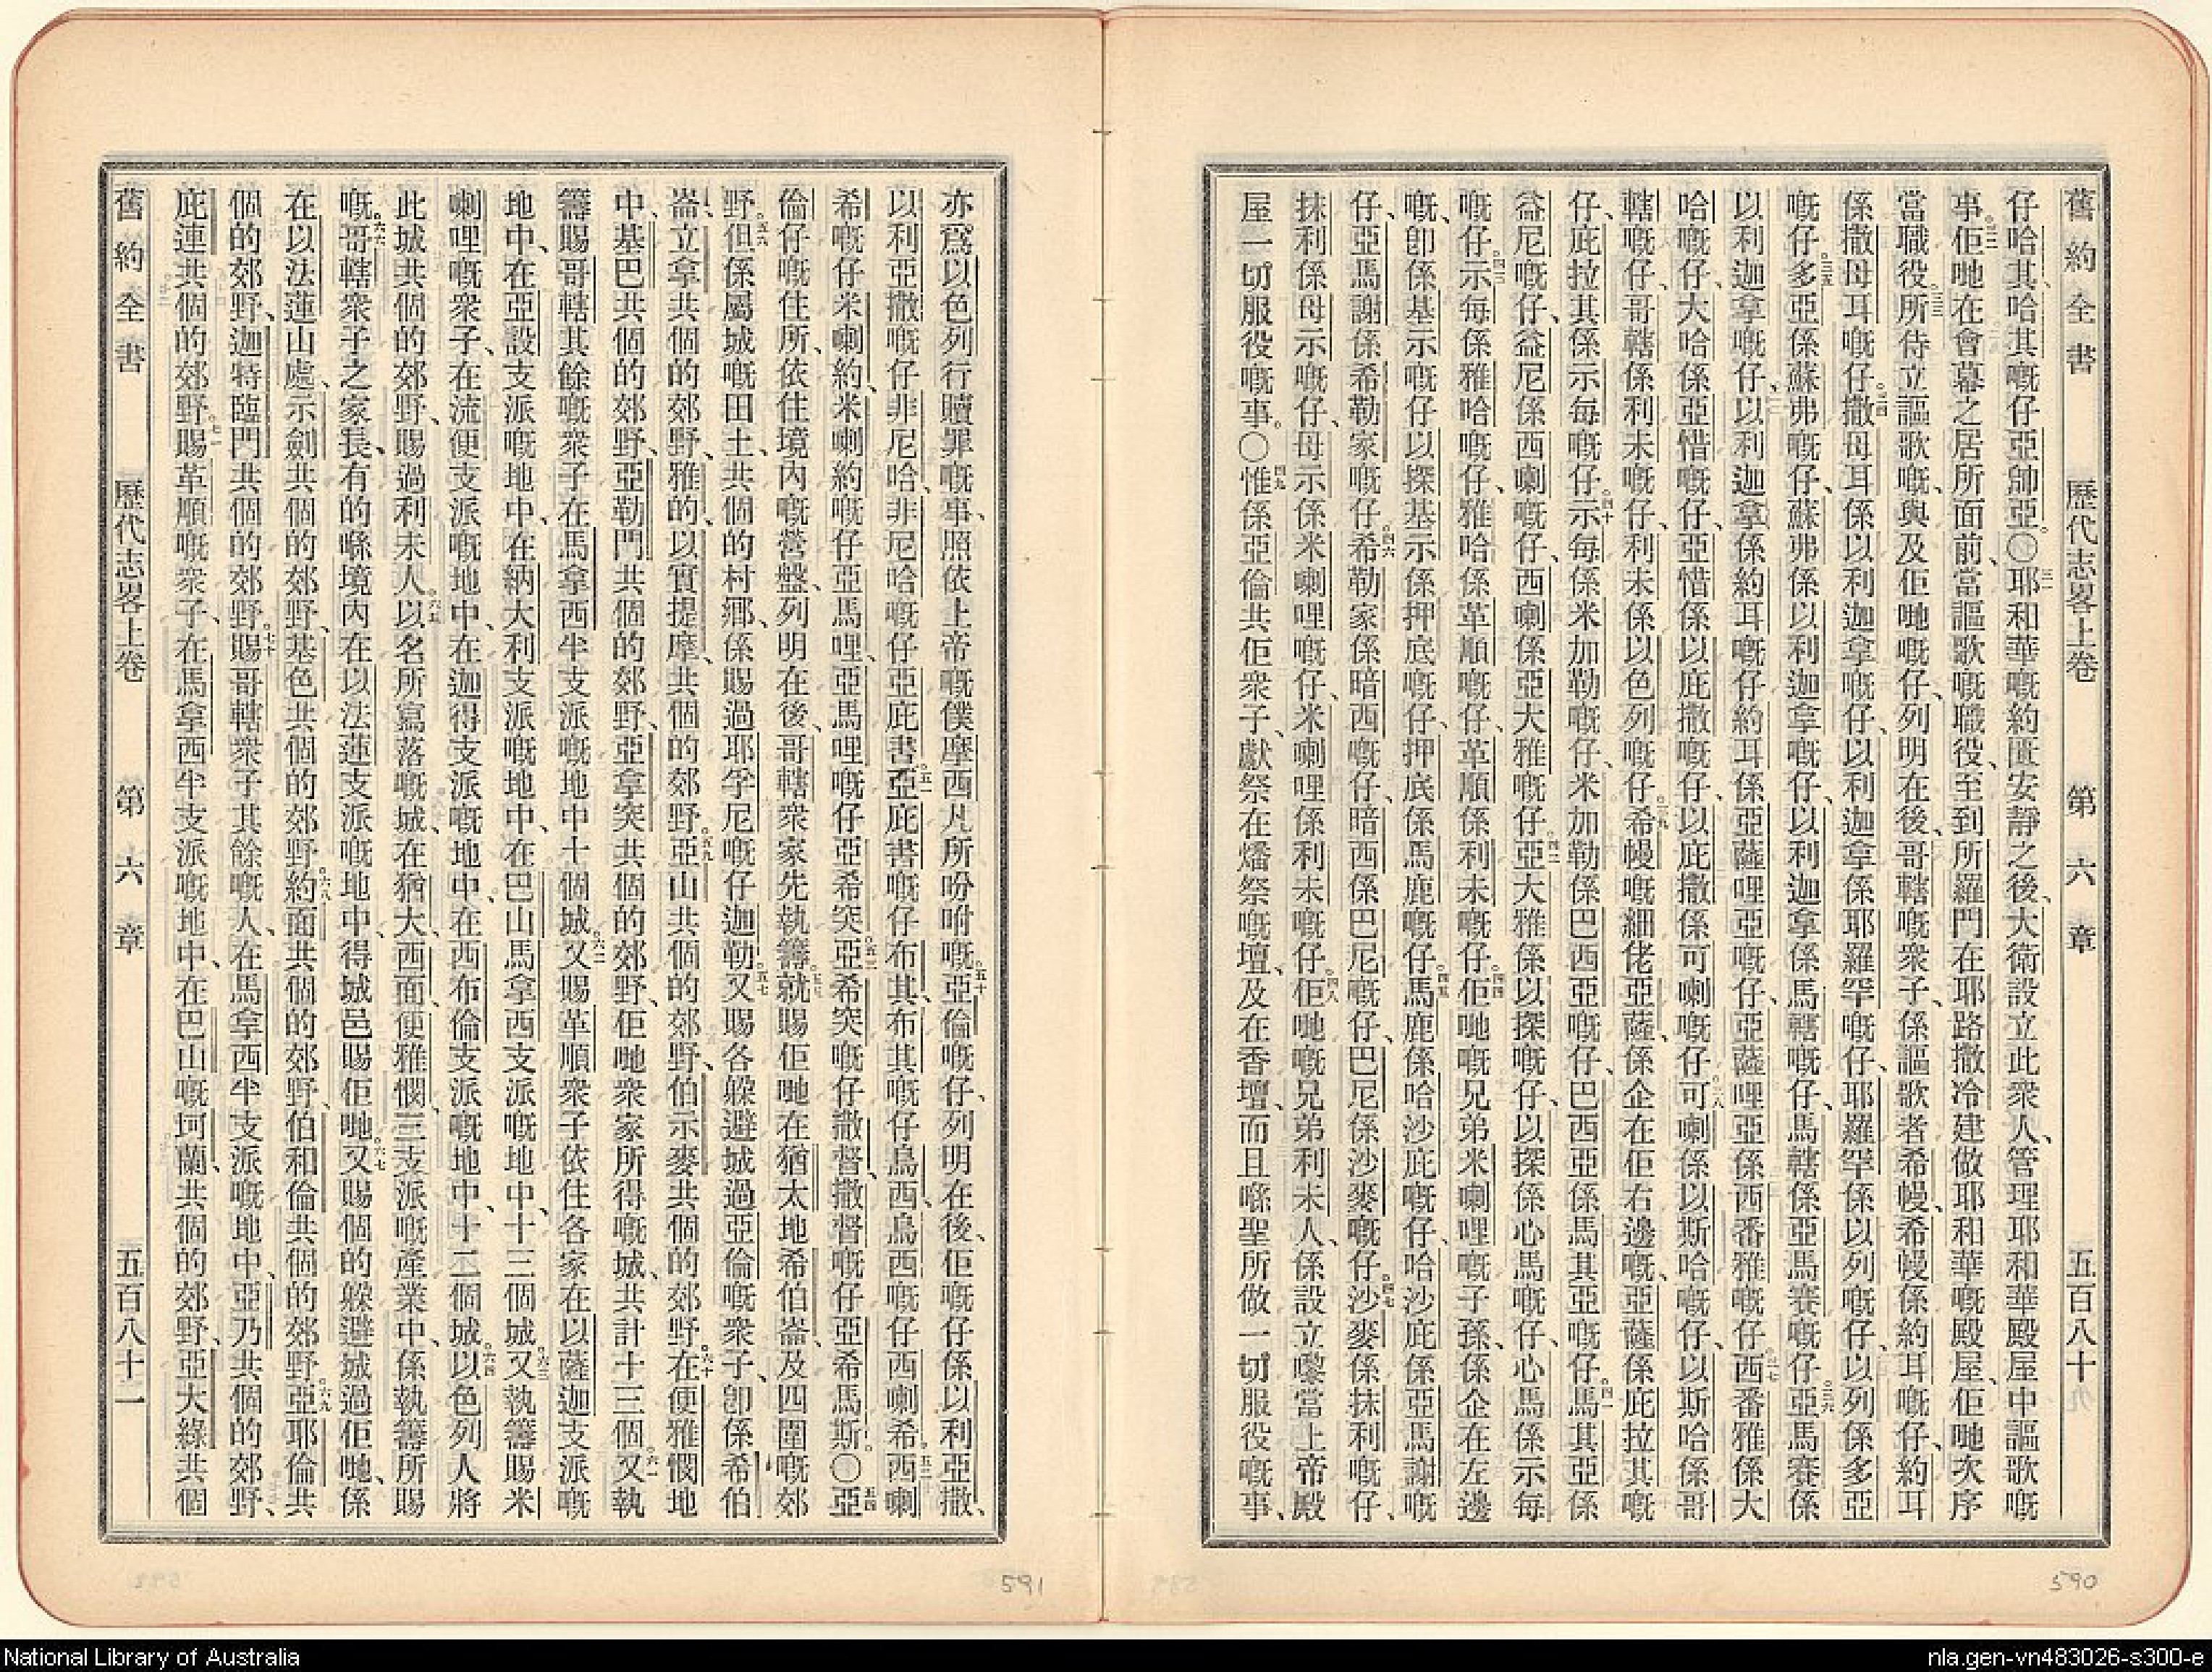 舊約全書 歷代志畧上卷 第六章 五百八十
仔哈其、哈其嘅仔亞帥亞。〇三一耶和華嘅約匱安靜之後、大衛設立此衆人、管理耶和華殿屋中謳歌嘅
事。三二佢哋在會幕之居所面前、當謳歌嘅職役、至到所羅門在耶路撒冷建做耶和華嘅殿屋、佢哋次序
當職役。三三所侍立謳歌嘅、與及佢哋嘅仔、列明在後、哥轄嘅衆子、係謳歌者希幔、希幔係約耳嘅仔、約耳
係撒母耳嘅仔。三四撒母耳係以利迦拿嘅仔、以利迦拿係耶羅罕嘅仔、耶羅罕係以列嘅仔、以列係多亞
嘅仔。三五多亞係蘇弗嘅仔、蘇弗係以利迦拿嘅仔、以利迦拿係馬轄嘅仔、馬轄係亞馬賽嘅仔。三六亞馬賽係
以利迦拿嘅仔、以利迦拿係約耳嘅仔約耳係亞薩哩亞嘅仔、亞薩哩亞係西番雅嘅仔。三七西番雅係大
哈嘅仔、大哈係亞惜嘅仔、亞惜係以庇撒嘅仔、以庇撒係可喇嘅仔。三八可喇係以斯哈嘅仔、以斯哈係哥
轄嘅仔、哥轄係利未嘅仔、利未係以色列嘅仔。三九希幔嘅細佬亞薩、係企在佢右邊嘅、亞薩係庇拉其嘅
仔、庇拉其係示每嘅仔。四十示每係米加勒嘅仔、米加勒係巴西亞嘅仔、巴西亞係馬其亞嘅仔。四一馬其亞係
益尼嘅仔、益尼係西喇嘅仔、西喇係亞大雅嘅仔。四二亞大雅係以探嘅仔、以探係心馬嘅仔、心馬係示每
嘅仔。四三示每係雅哈嘅仔、雅哈係革順嘅仔、革順係利未嘅仔。四四佢哋嘅兄弟米喇哩嘅子孫、係企在左邊
嘅、卽係基示嘅仔以探、基示係押底嘅仔、押底係馬鹿嘅仔。四五馬鹿係哈沙庇嘅仔、哈沙庇係亞馬謝嘅
仔、亞馬謝係希勒家嘅仔。四六希勒家係暗西嘅仔、暗西係巴尼嘅仔、巴尼係沙麥嘅仔。四七沙麥係抹利嘅仔、
抹利係母示嘅仔、母示係米喇哩嘅仔、米喇哩係利未嘅仔。四八佢哋嘅兄弟利未人、係設立嚟當上帝殿
屋一切服役嘅事。〇四九惟係亞倫共佢衆子、獻祭在燔祭嘅壇、及在香壇、而且喺聖所做一切服役嘅事、
亦爲以色列行贖罪嘅事、照依上帝嘅僕摩西凡所吩咐嘅。五十亞倫嘅仔、列明在後、佢嘅仔係以利亞撒、
以利亞撒嘅仔非尼哈、非尼哈嘅仔亞庇書。五一亞庇書嘅仔布其、布其嘅仔烏西、烏西嘅仔西喇希。五二西喇
希嘅仔米喇約、米喇約嘅仔亞馬哩、亞馬哩嘅仔亞希突。五三亞希突嘅仔撒督、撒督嘅仔亞希馬斯。〇五四亞
倫仔嘅住所、依住境內嘅營盤、列明在後、哥轄衆家先執籌。五五就賜佢哋在猶太地希伯崙、及四圍嘅郊
野。五六但係屬城嘅田土、共個的村鄉、係賜過耶孚尼嘅仔迦勒。五七又賜各躱避城過亞倫嘅衆子、卽係希伯
崙、立拿共個的郊野、雅的、以實提摩、共個的郊野。五九亞山共個的郊野、伯示麥共個的郊野。六十在便雅憫地
中、基巴共個的郊野、亞勒門共個的郊野、亞拿突共個的郊野、佢哋衆家所得嘅城、共計十三個。六一又執
籌賜哥轄其餘嘅衆子、在馬拿西半支派嘅地中十個城。六二又賜革順衆子依住各家在以薩迦支派嘅
地中、在亞設支派嘅地中、在納大利支派嘅地中、在巴山馬拿西支派嘅地中、十三個城。六三又執籌賜米
喇哩嘅衆子、在流便支派嘅地中、在迦得支派嘅地中、在西布倫支派嘅地中、十二個城。六四以色列人將
此城共個的郊野、賜過利未人。六五以名所寫落嘅城、在猶大、西面、便雅憫、三支派嘅產業中、係執籌所賜
嘅。六六哥轄衆子之家長、有的喺境內在以法蓮支派嘅地中、得城邑賜佢哋。六七又賜個的躱避城過佢哋、係
在以法蓮山處、示劍共個的郊野、基色共個的郊野。六八約面共個的郊野、伯和倫共個的郊野。六九亞耶倫共
個的郊野、迦特臨門共個的郊野。七十賜哥轄衆子其餘嘅人、在馬拿西半支派嘅地中、亞乃共個的郊野、
庇連共個的郊野。七一賜革順嘅衆子、在馬拿西半支派嘅地中、在巴山嘅坷蘭共個的郊野、亞大綠共個
舊約全書 歷代志畧上卷 第六章 五百八十一
590
591
National Library of Australia
nla.gen-vn483026-s300-e